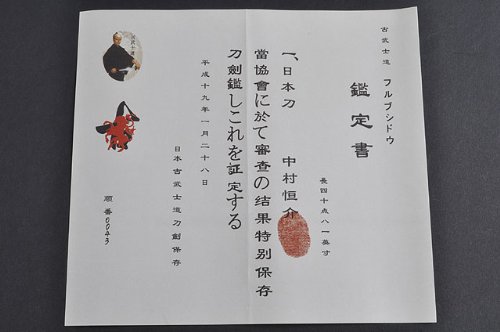 古武士道 フルブシドウ
鑑定書
長四十点八一英寸
一、日本刀 中村恒介
當協會に於て審查の结果特別保存
刀劍鑑しこれを証定する
平成十九年一月二十八日
日本古武士道刀劍保存
順番0043